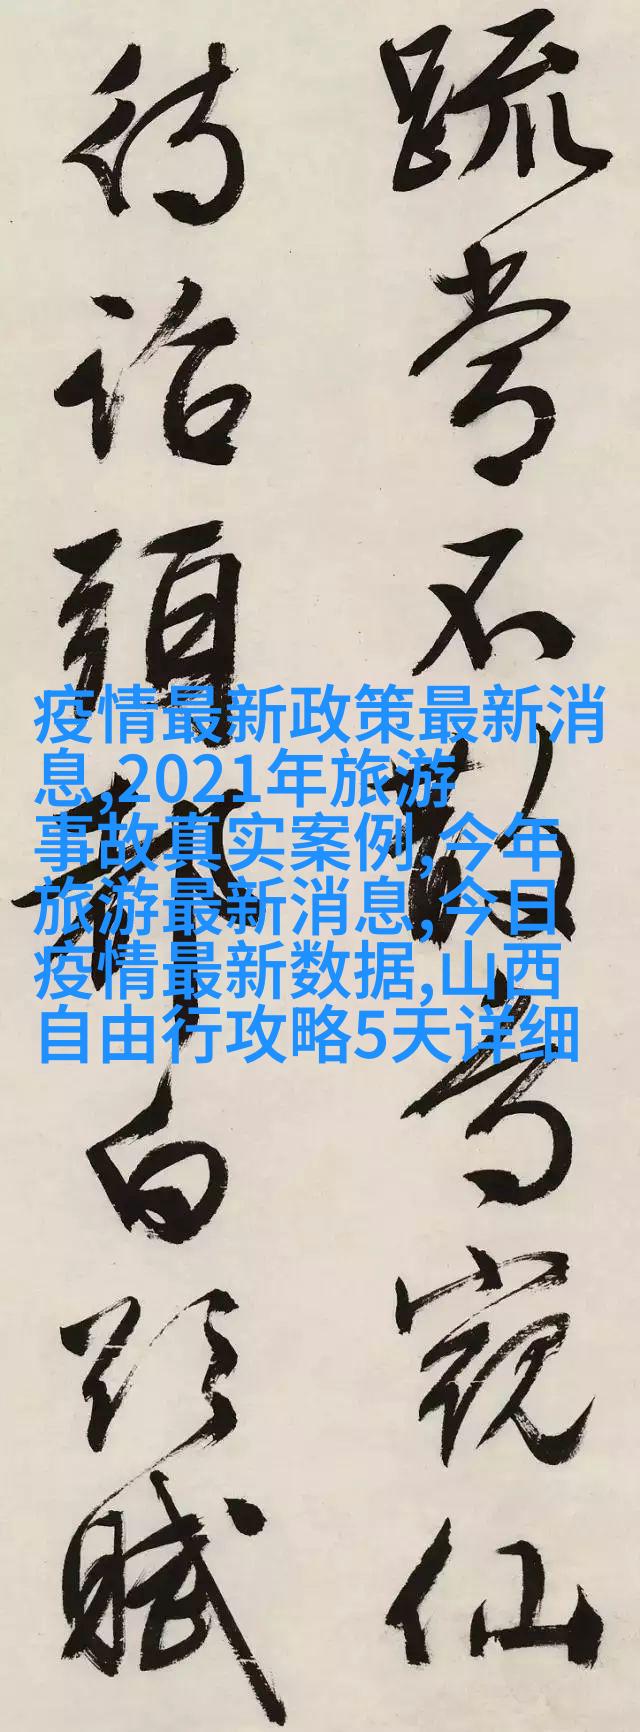 踈常不敢窺仙
待詔白頭賦
疫情最新政策最新消
息,2021年旅游
事故真实案例,今年
旅游最新消息,今日
疫情最新数据,山西
自由行攻略5天详细